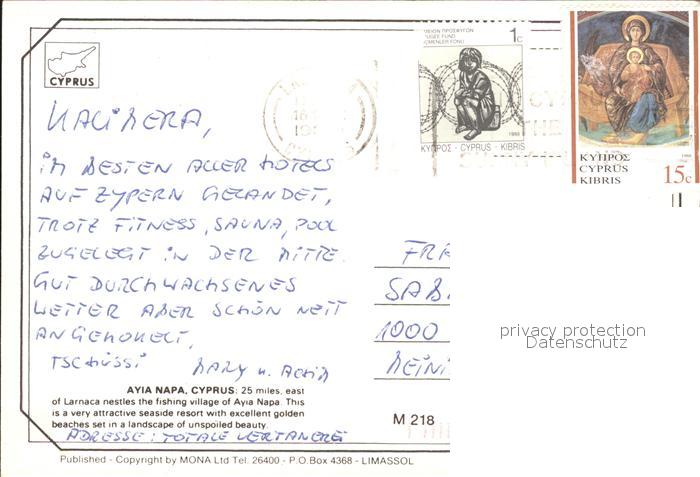 CYPRUS
KALIMERA,
IM BESTEN ALLER HOTELS
AUF ZYPERN GELANDET,
TROTZ FITNESS, SAUNA, POOL
ZUGELEGT IN DER MITTE.
GUT DURCHWACHSENES
WETTER ABER SCHÖN NETT
ANGEHAUCHT,
TSCHÜSSI MARY u. ACHIM
AYIA NAPA, CYPRUS: 25 miles, east
of Larnaca nestles the fishing village of Ayia Napa. This
is a very attractive seaside resort with excellent golden
beaches set in a landscape of unspoiled beauty.
ADRESSE: TOTALE
Published - Copyright by MONA Ltd Tel. 26400 - P.O.Box 4368 - LIMASSOL
1c
1988
ΚΥΠΡΟΣ - CYPRUS - KIBRIS
ΚΥΠΡΟΣ
CYPRUS
KIBRIS
15c
FRA
SAB
1000
MEINI
M 218
privacy protection
Datenschutz